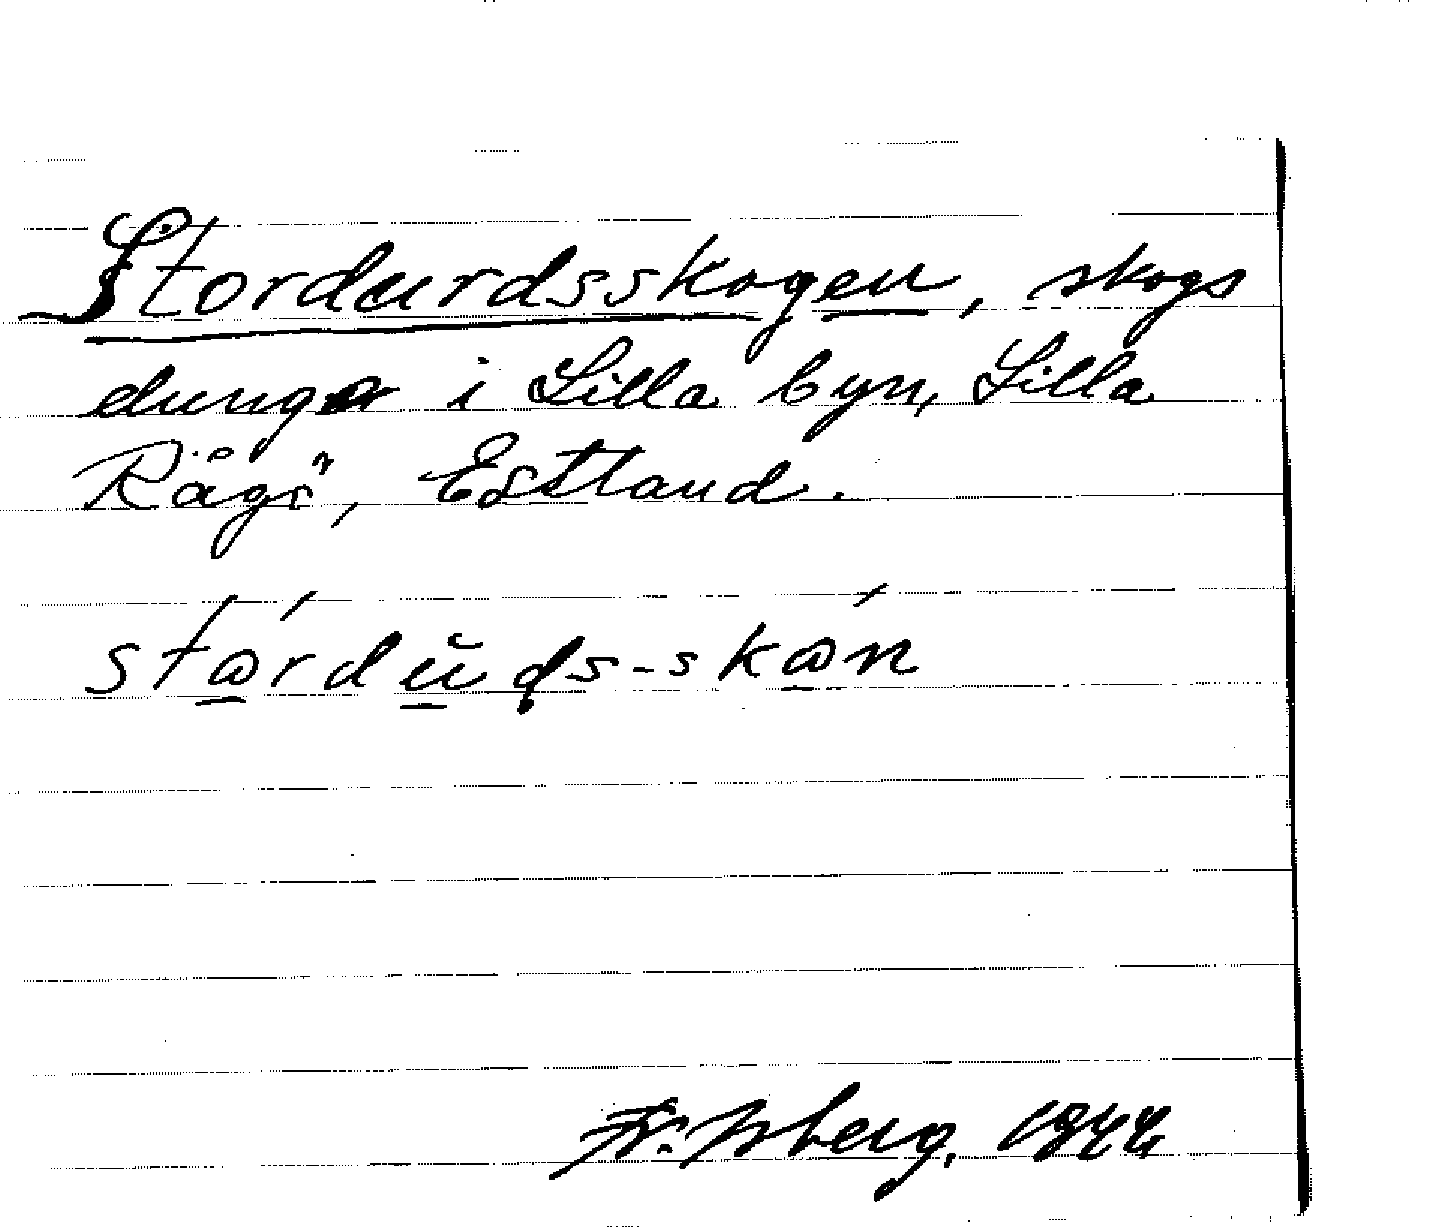 Stordurdsskogen, skogs
dunge i Lilla byn, Lilla
Rågö, Estland.
stårdŭds-skån
1944